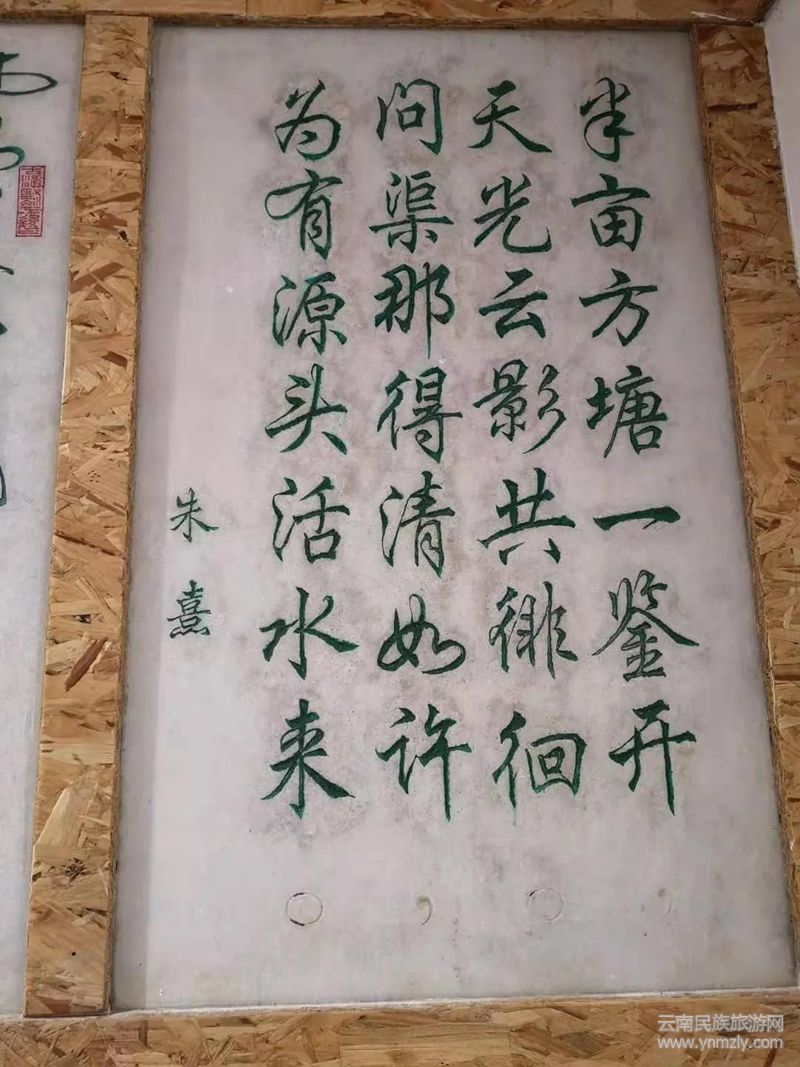 半亩方塘一鉴开，
天光云影共徘徊。
问渠那得清如许，
为有源头活水来。
朱熹
云南民族旅游网
www.ynmzly.com